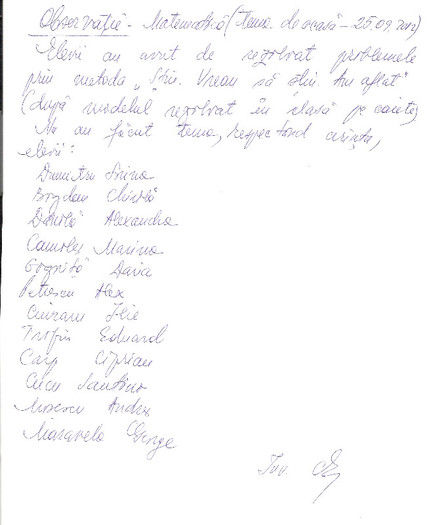 Observație - Matematică (tema de acasă - 25.09.2012)
Elevii au avut de rezolvat problemele
prin metoda „Știu. Vreau să știu. Am aflat"
(după modelul rezolvat în clasă pe caiete)
Nu au făcut tema, respectând cerința,
elevii:
Dumitru Sorina
Bogdan
Dănilă Alexandra
Marina
Daria
Petrescu Alex
Ilie
Trofin Eduard
Carp Ciprian
Cucu
Andrei
George
Înv.